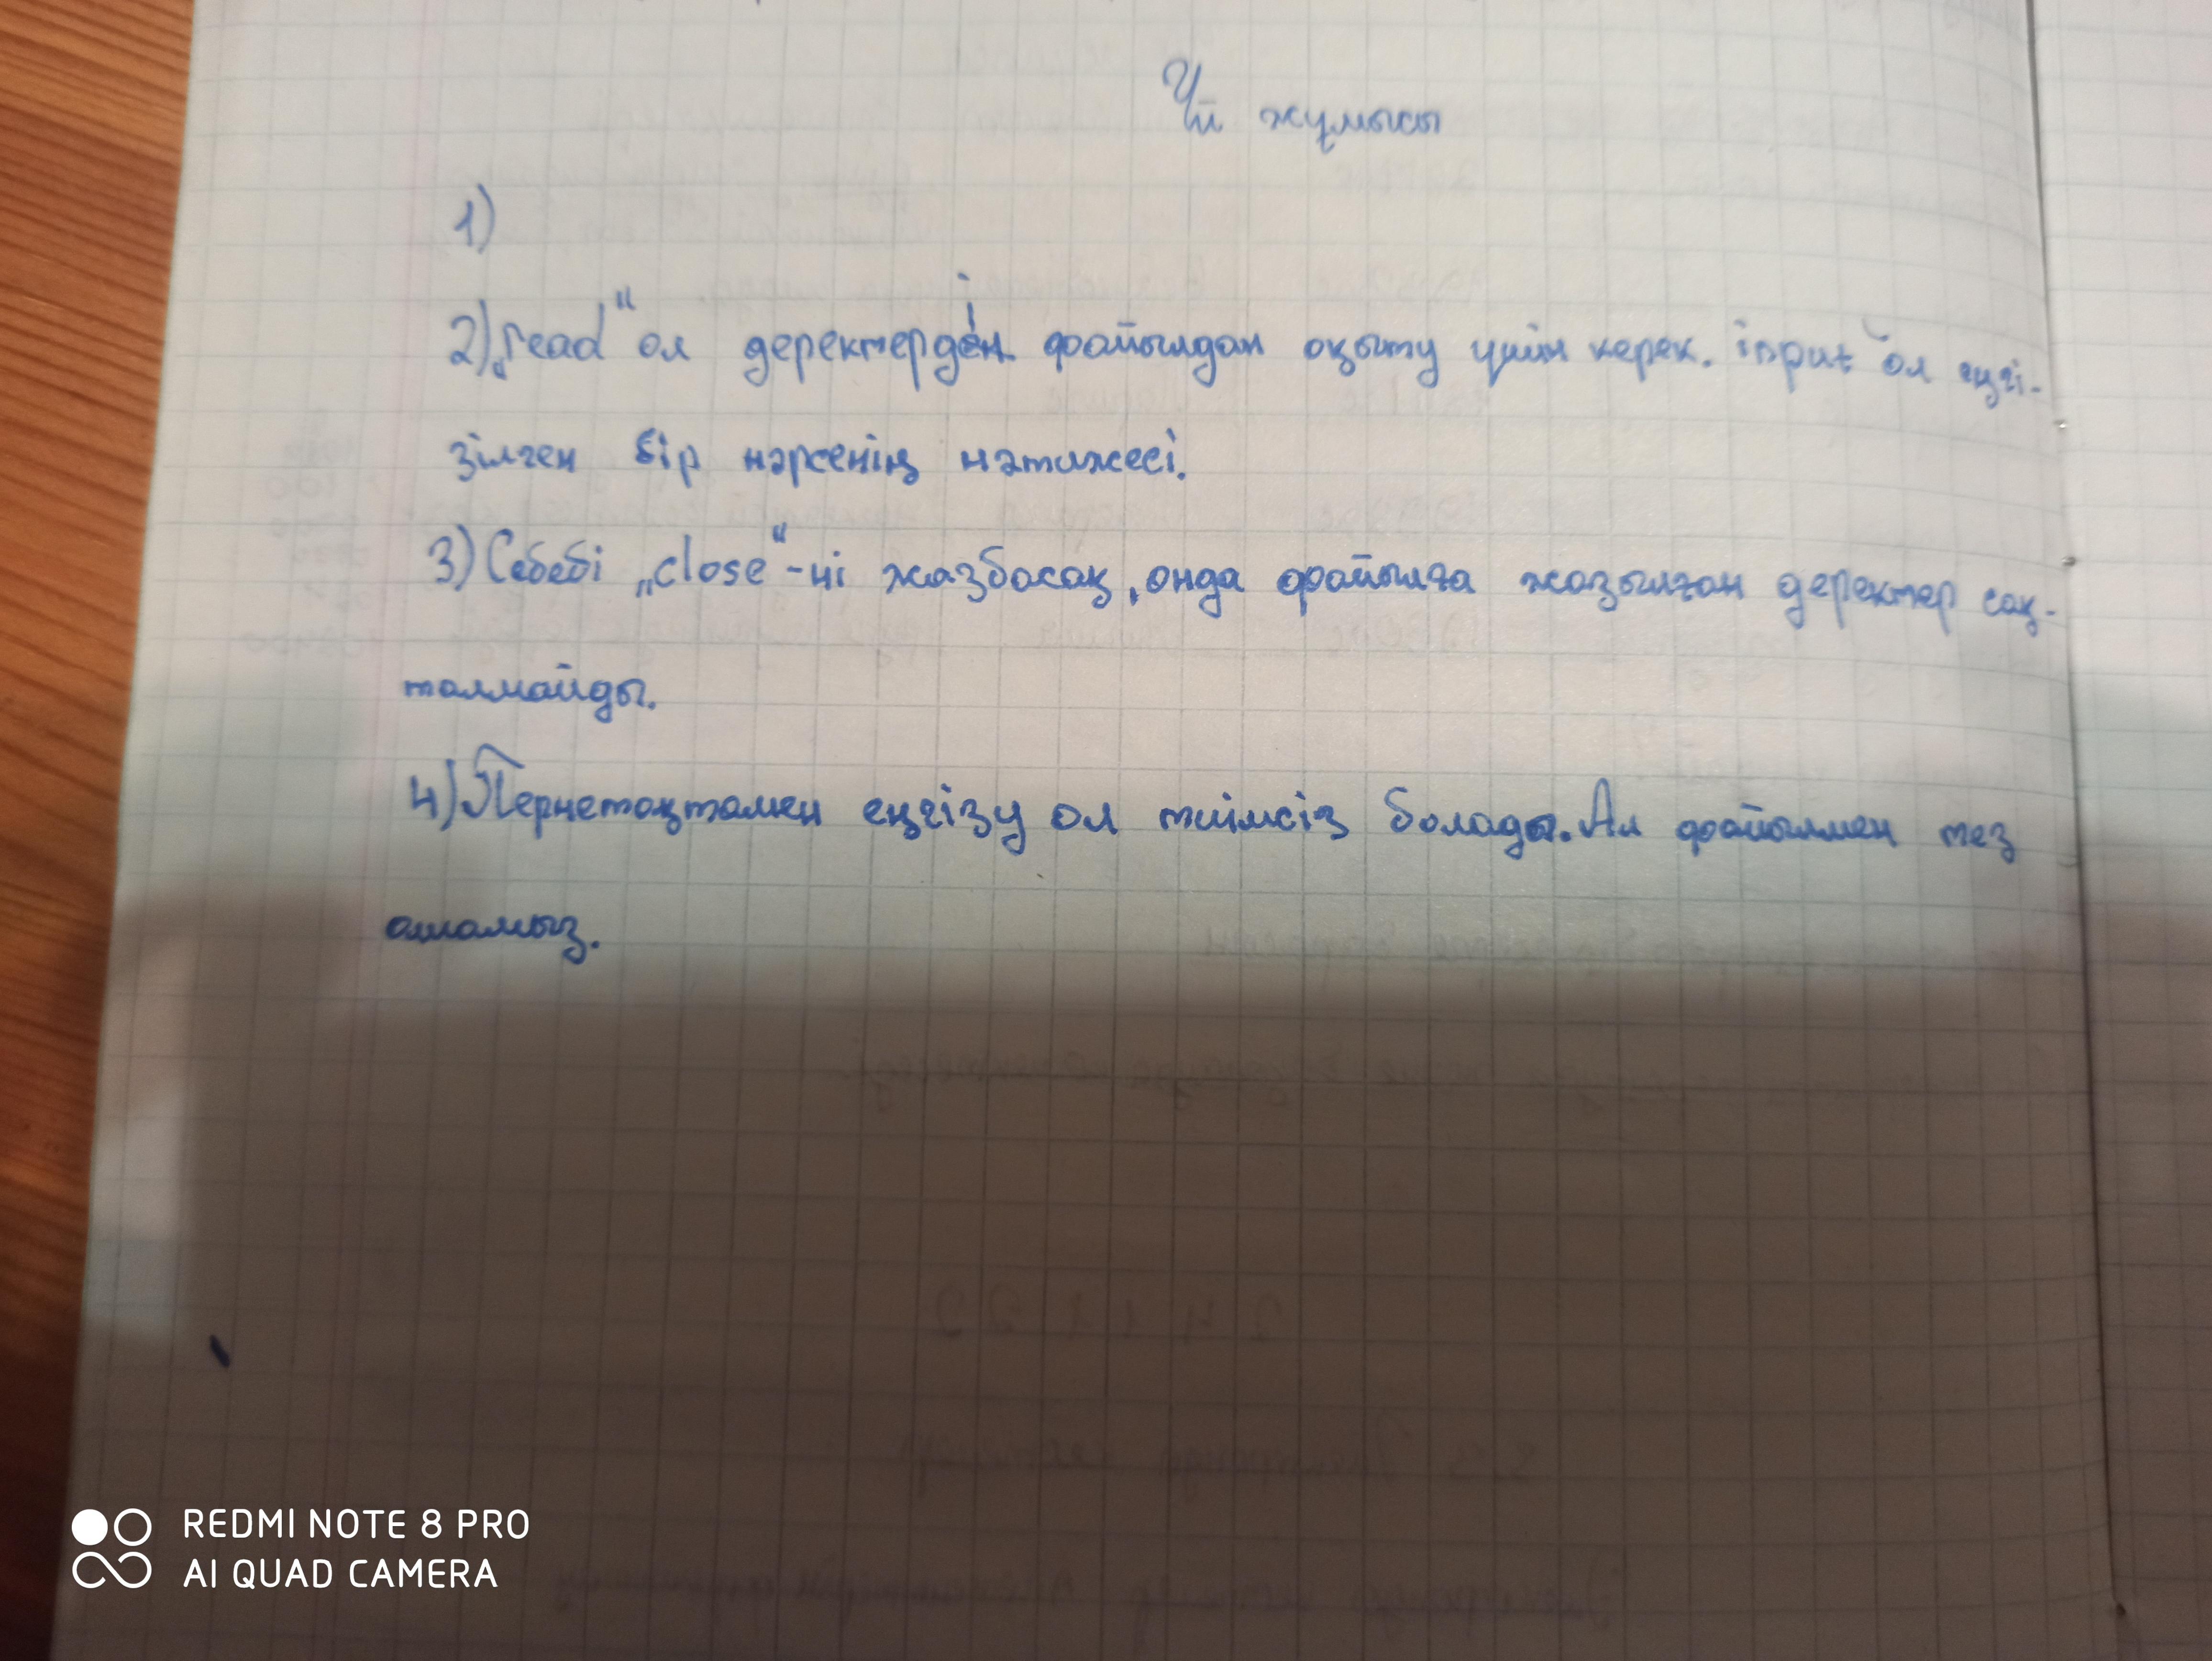 Үй жұмысы
1)
2) „read" ол деректерді файылдан оқыту үшін керек. input" ол еңгі-
зілген бір нәрсенің нәтижесі.
3) Себебі „close"-ті жазбасақ, онда файылға жазылған деректер сақ-
талмайды.
4) Пернетақтамен еңгізу ол тиімсіз болады. Ал файылмен тез
ашамыз.
REDMI NOTE 8 PRO
AI QUAD CAMERA